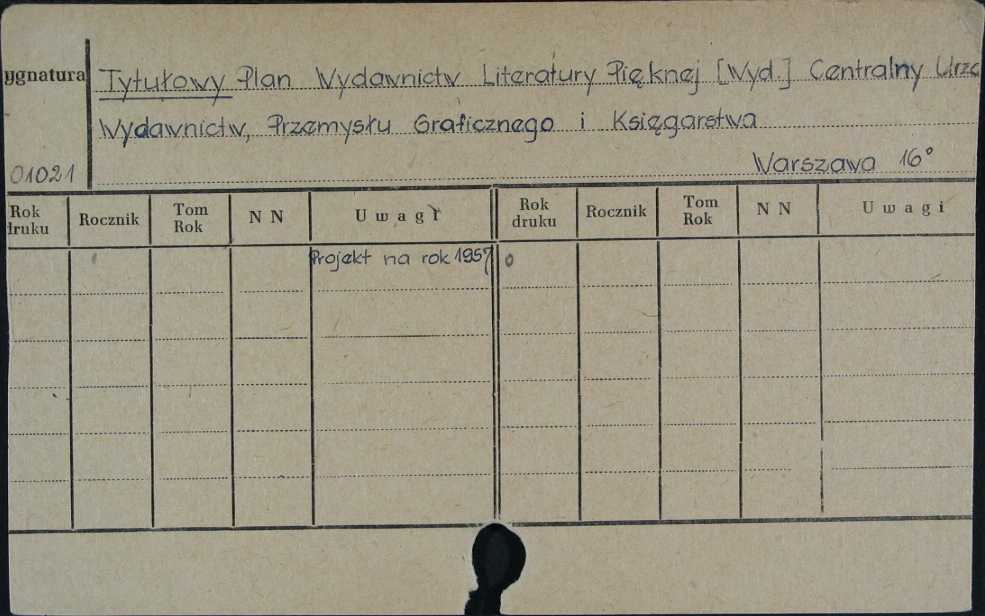 ygnatura
Tytułowy Plan Wydawnictw Literatury Pięknej [Wyd.] Centralny Urzę
Wydawnictw, Przemysłu Graficznego i Księgarstwa
01021
Warszawa 16°
Rok druku Rocznik Tom Rok NN Uwagi Rok druku Rocznik Tom Rok NN Uwagi
Projekt na rok 1957